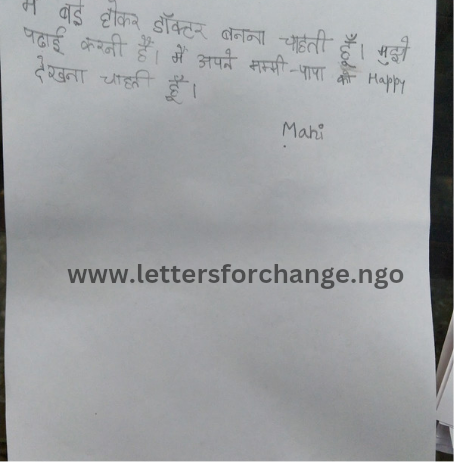 मैं बड़े होकर डॉक्टर बनना चाहती हूँ। मुझे
पढाई करनी हैं। मैं अपने मम्मी-पापा को Happy
देखना चाहती हूँ।
Mahi
www.lettersforchange.ngo